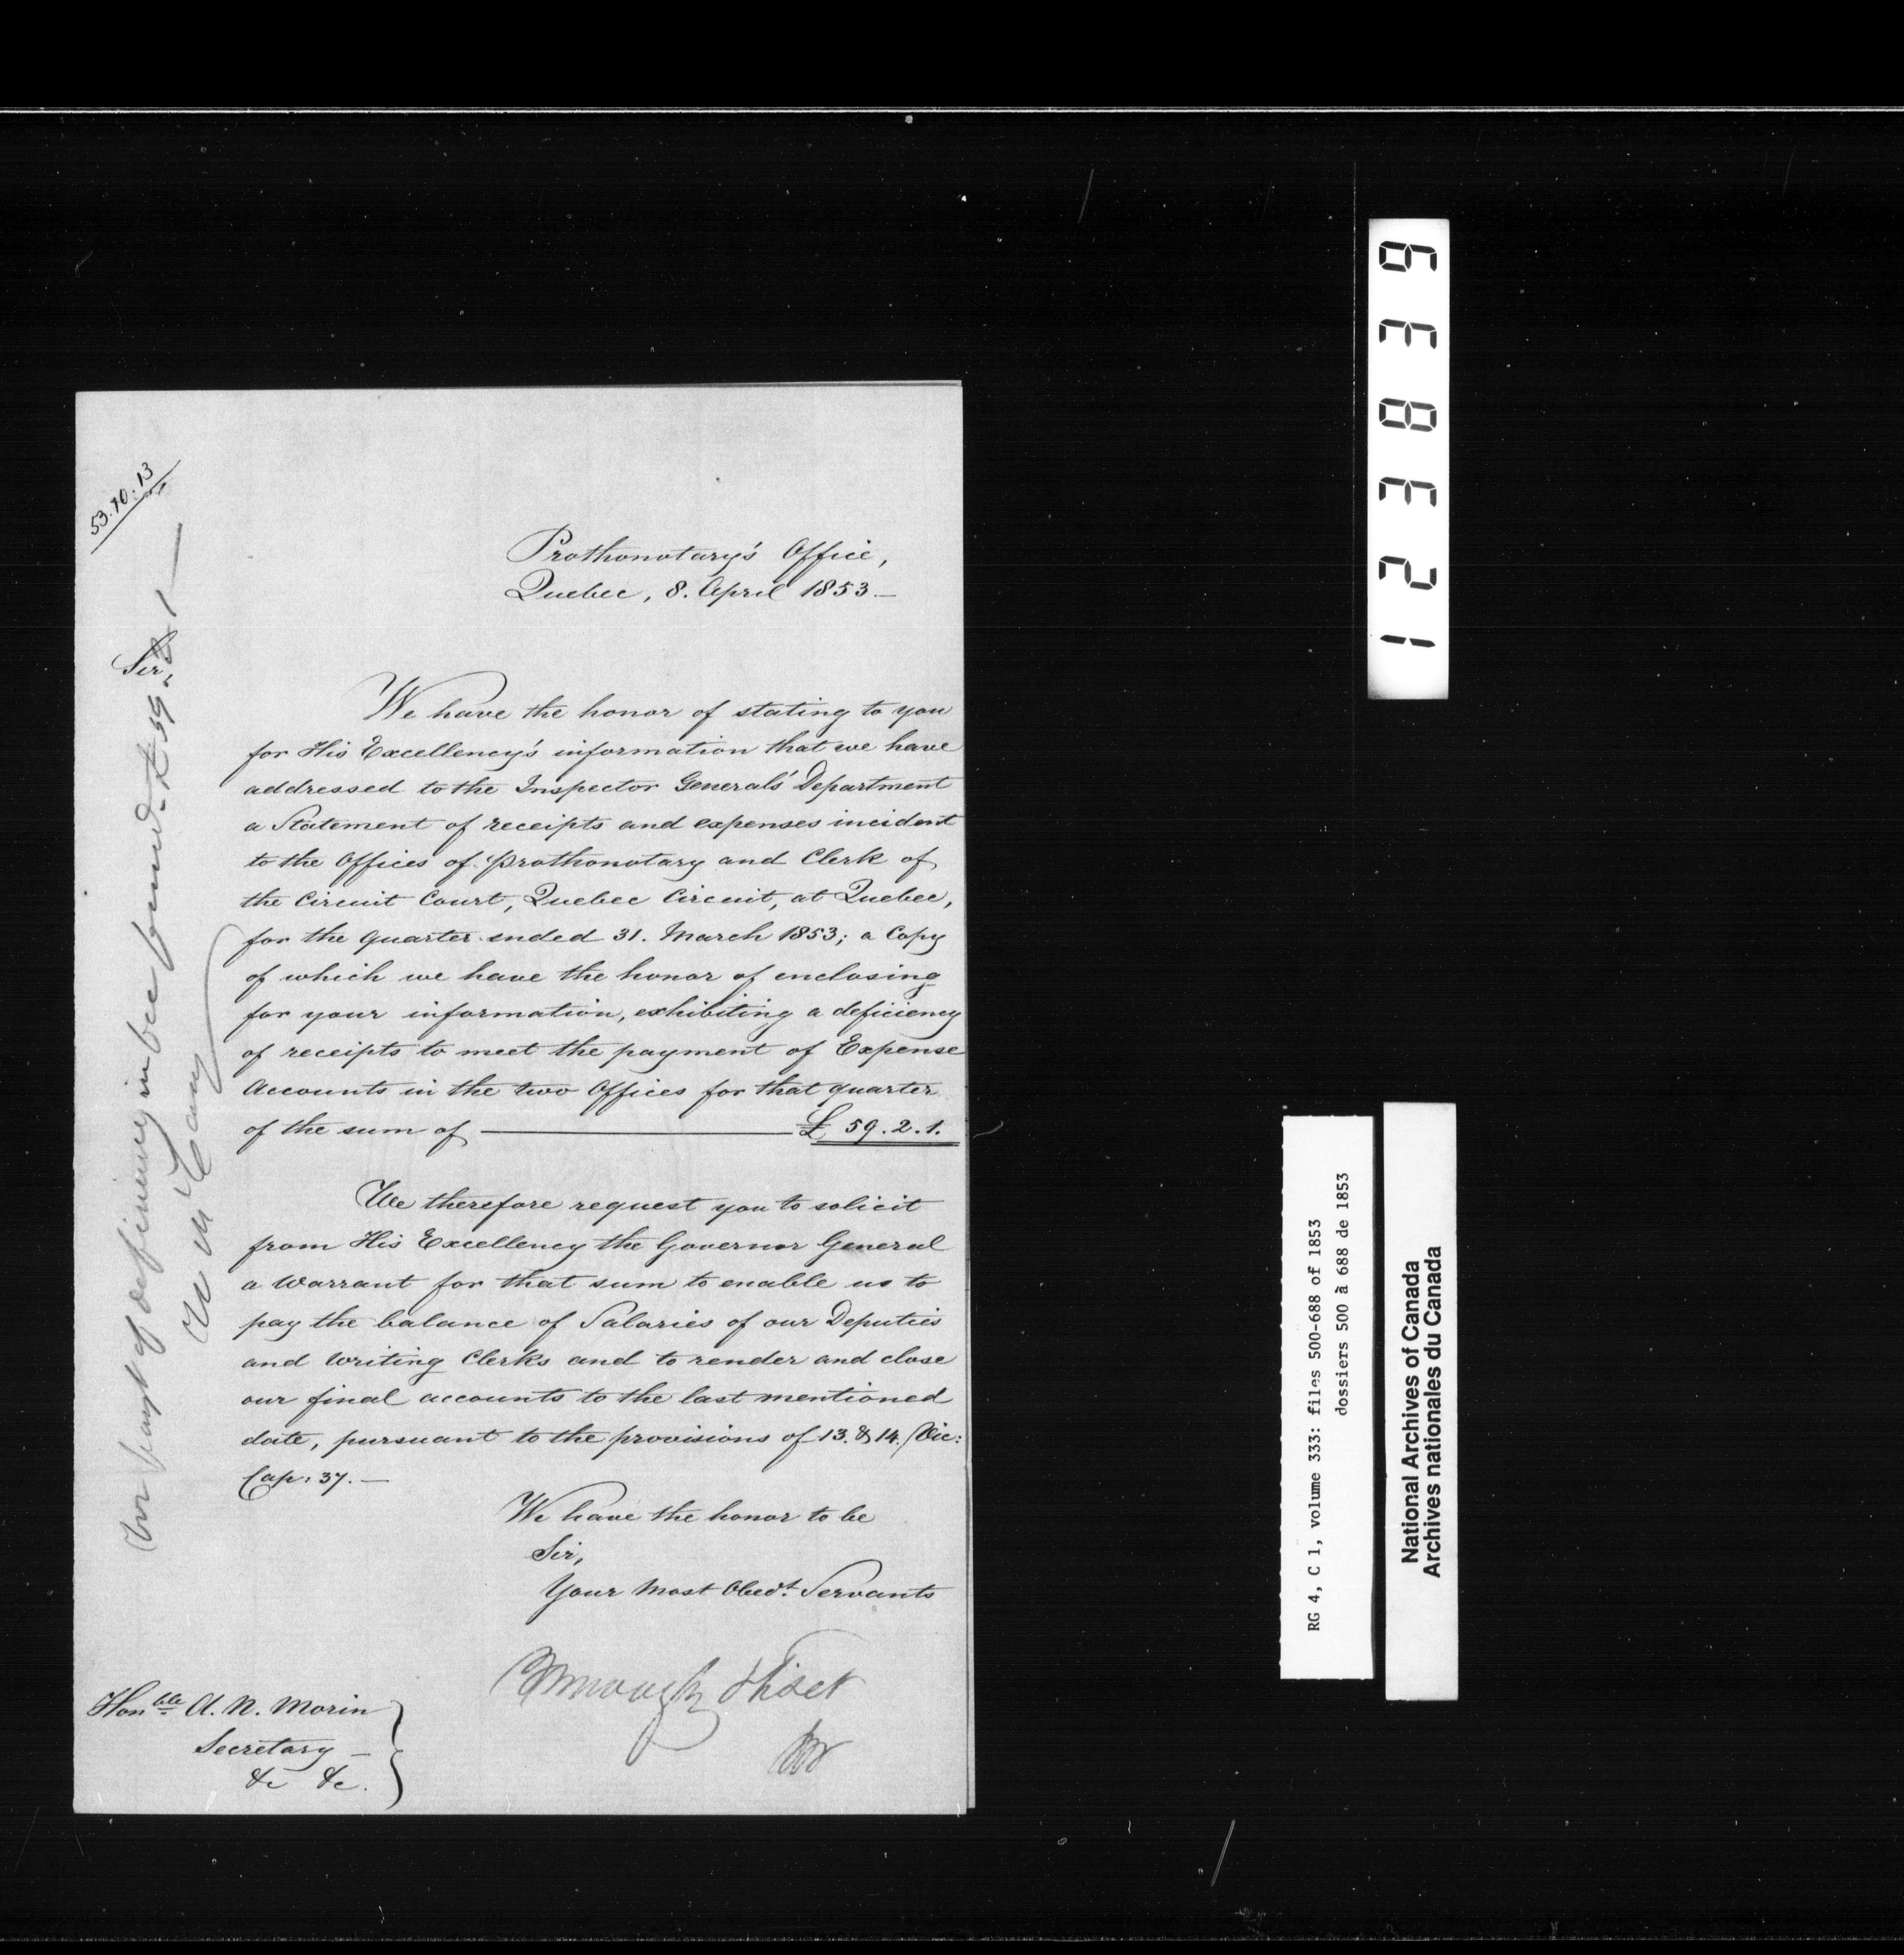 53.10.13
Prothonotary's Office,
Quebec, 8. April 1853.—
Sir,
We have the honor of stating to you
for His Excellency's information that we have
addressed to the Inspector Generals' Department
a Statement of receipts and expenses incident
to the Offices of Prothonotary and Clerk of
the Circuit Court, Quebec Circuit, at Quebec,
for the quarter ended 31. March 1853; a Copy
of which we have the honor of enclosing
for your information, exhibiting a deficiency
of receipts to meet the payment of Expense
Accounts in the two Offices for that quarter
of the sum of — £ 59.2.1.
We therefore request you to solicit
from His Excellency the Governor General
a Warrant for that sum to enable us to
pay the balance of Salaries of our Deputies
and Writing Clerks and to render and close
our final accounts to the last mentioned
date, pursuant to the provisions of 13. & 14. Vic:
Cap: 37.—
We have the honor to be
Sir,
Your Most Obedt. Servants
Burroughs & Fiset
Hon'ble A. N. Morin
Secretary —
&c &c.
of deficiency in fee fund £59
123839
RG 4, C 1, volume 333: files 500-688 of 1853
dossiers 500 à 688 de 1853
National Archives of Canada
Archives nationales du Canada